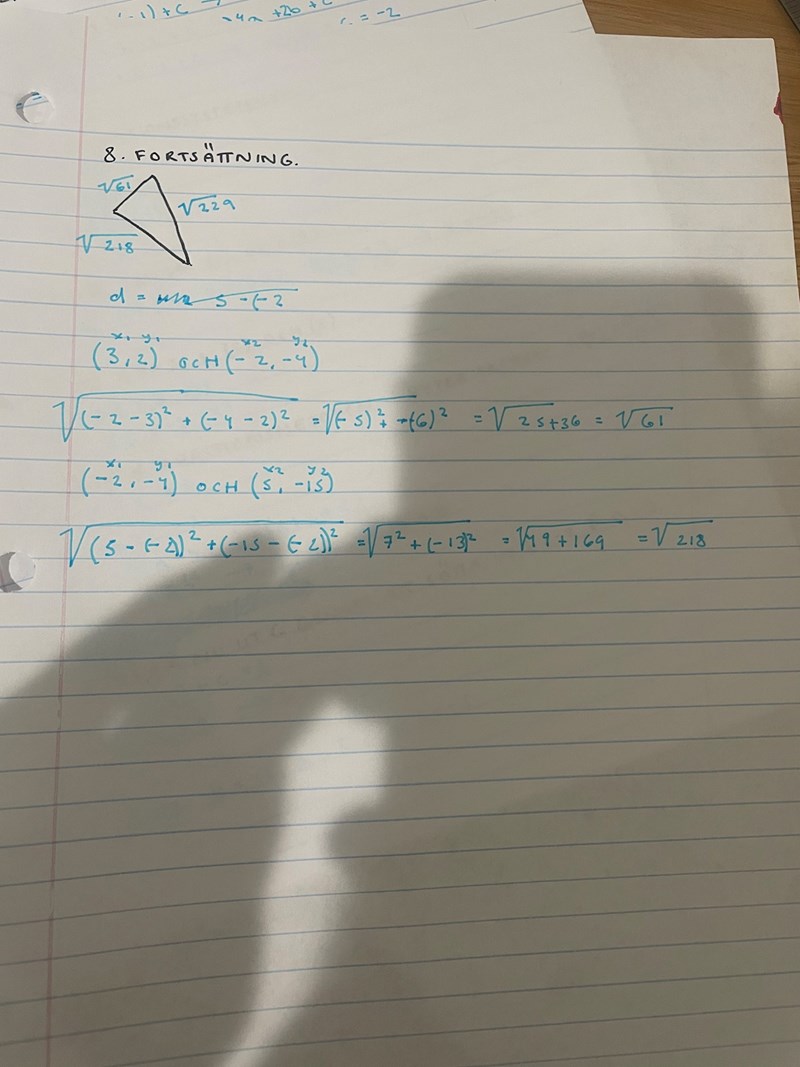 -1) + C -4x + 20 + C
C = -2
8. FORTSÄTTNING.
√61
√229
√218
d = 5-(-2
x₁ y₁ x2 y2
(3,2) OCH (-2, -4)
√(-2-3)² + (-4-2)² = √(-5)² + -(6)² = √25+36 = √61
x₁ y₁ x2 y2
(-2, -4) OCH (5, -15)
√(5-(-2))² + (-15-(-2))² = √7² + (-13)² = √49+169 = √218